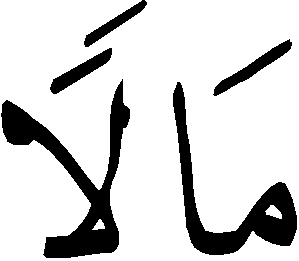 مَالًا